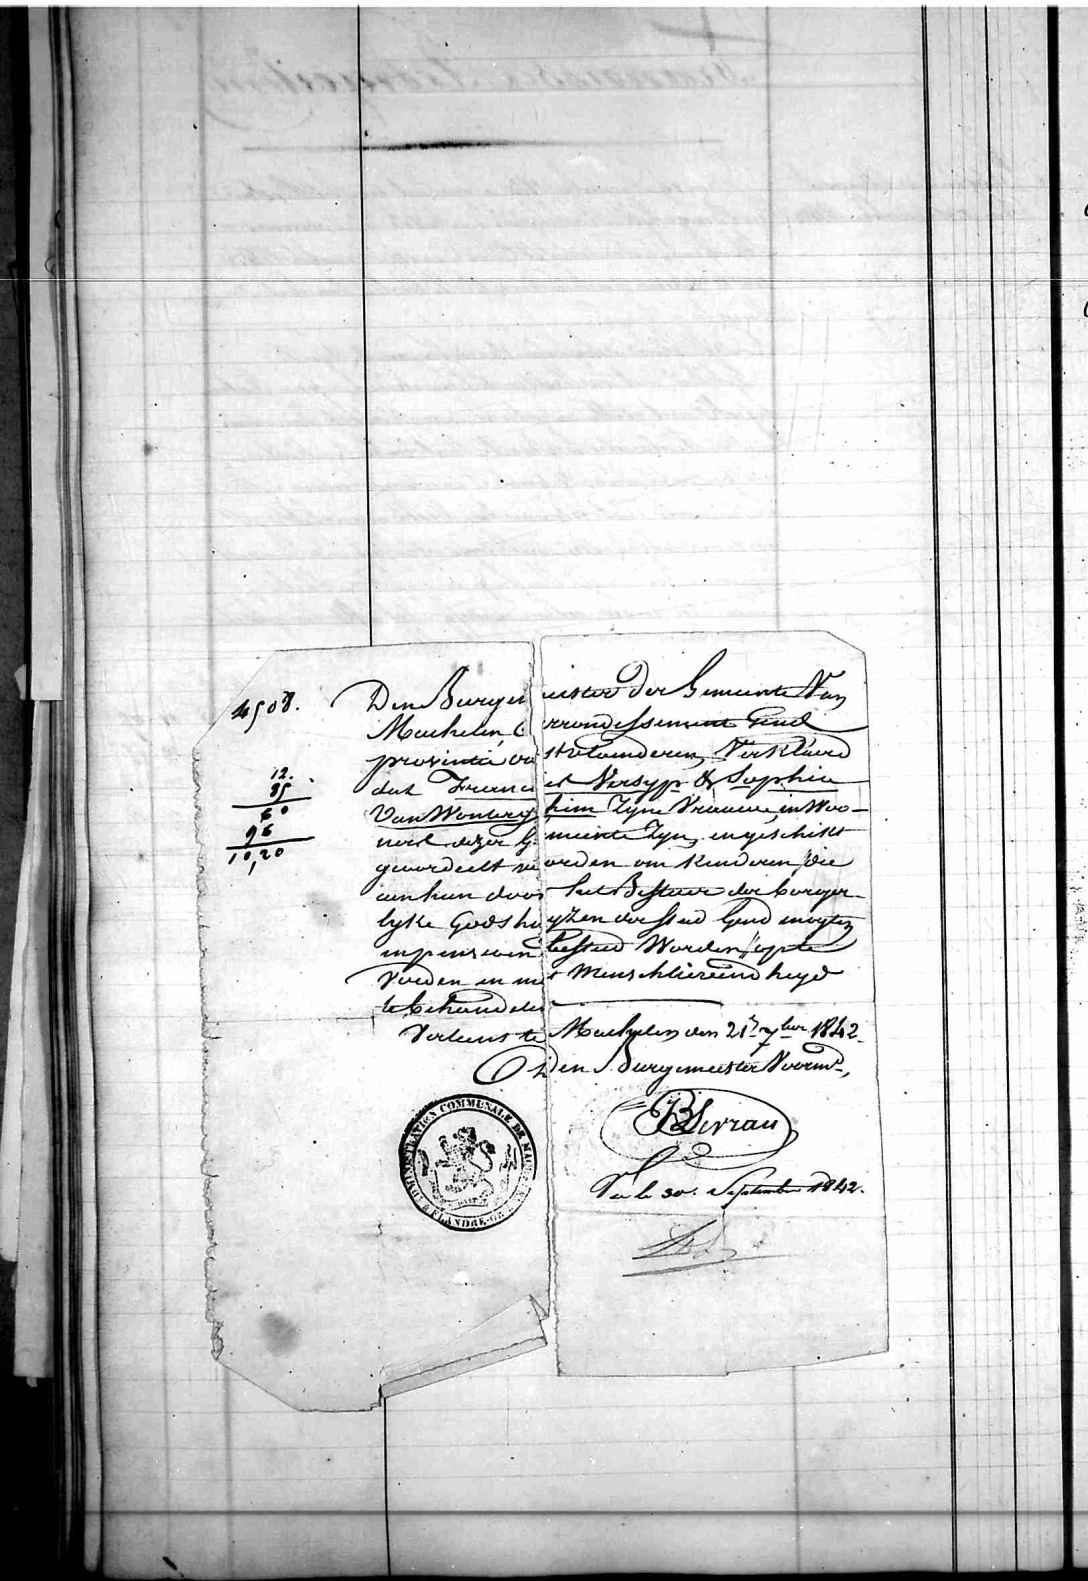 4508.
12.
85
60
96
10,20
1
Den Burgemeister der Gemeente Van
Machelen, Arrondissement Gend
provintie oostvlaenderen, Verklaerd
dat Francies Versyp & Sophia
Van Wonterghim Zyne Vrauwe, in Woo-
nert dezer Gemeinte Zyn, en geschikt
geoordeelt worden om Kinderen, die
aen hun door het Bestuer der borger-
lyke Godshuyzen der Stad Gend mogten
in pensioen besteed Worden, op te
Voeden en met Menschlievendheyd
te behandelen
Verleent te Machelen den 21n 7ber 1842.
Den Burgemeester Voormd,
Vu le 30. Septembre 1842.
ADMINISTRATION COMMUNALE DE
FLANDRE-OR